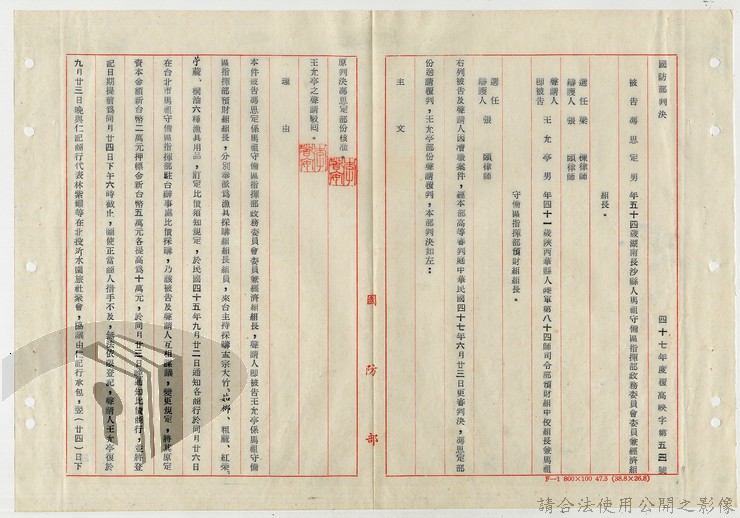 國防部判決
四十七年度覆高映字第五 號
被告 蕩思定 男 年五十四歲湖南長沙縣人馬祖守備區指揮部政務委員會委員兼經濟組
組長。
選任 梁 棟律師
辯護人 張 頤律師
聲請人
即被告 王允亭 男 年四十一歲陝西華縣人陸軍第八十四師司令部預財組中校組長兼馬祖
守備區指揮部預財組組長。
選任
辯護人 張 頤律師
右列被告及聲請人因瀆職案件,經本部高等審判庭中華民國四十七年六月廿三日更審判決,蕩思定部
份送請覆判,王允亭部份聲請覆判,本部判決如左:
主文
原判決蕩思定部份核准
王允亭之聲請駁回。
理由
本件被告蕩思定係馬祖守備區指揮部政務委員會委員兼經濟組組長,聲請人即被告王允亭係馬祖守備
區指揮部預財組組長,分別奉派為漁具採購組組長組員,來台主持採購孟宗大竹、 、粗簾、紅柴、
簾、桐油六種漁具用品,訂定比價須知規定,於民國四十五年九月二日通知各商行於同月廿六日
在台北市馬祖守備區指揮部駐台辦事處比價採購,乃該被告及聲請人互相謀議,變更規定,將其原定
資本金額新台幣二萬元押標金新台幣五萬元各提高為十萬元,於同月廿三日 通知比價商行,並將登
記日期提前為同月廿四日下午六時截止,顯使正當商人措手不及,無法依限登記,聲請人王允亭復於
九月廿三日晚與仁記商行代表林紫 等在北投芳水園旅社聚會,協議由仁記行承包,翌(廿四)日下
國防部
F—1 800×100 47.3 (38.8×26.8)
請合法使用公開之影像